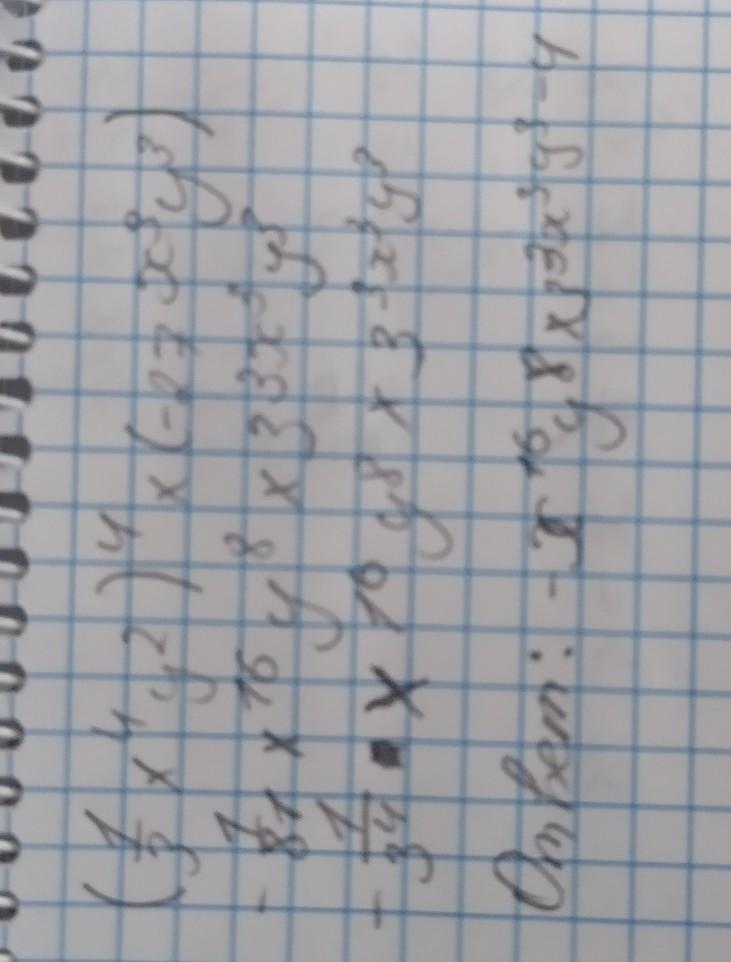 (1/3 x⁴y²)⁴ × (-27x⁹y³)
-1/81 x¹⁶y⁸ × 3³x³y³
-1/3⁴ · x¹⁶y⁸ × 3³x³y³
Ответ: -x¹⁶y⁸